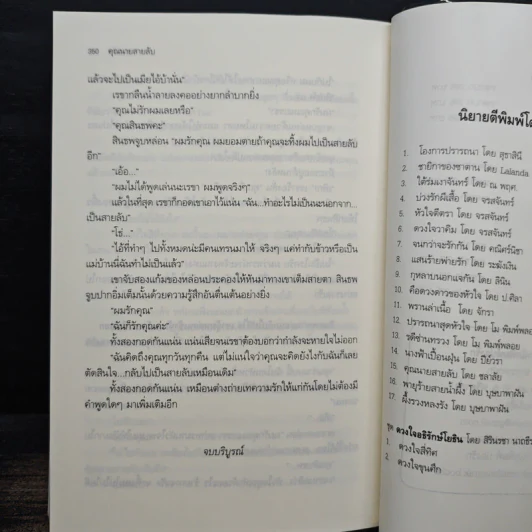 350 คุณนายสายลับ
แล้วจะไปเป็นเมียไอ้บ้านั่น"
เรขากลืนน้ำลายลงคออย่างยากลำบากยิ่ง
"คุณไม่รักผมเลยหรือ"
"คุณสินธพคะ"
สินธพจูบหล่อน "ผมรักคุณ ผมยอมตายถ้าคุณจะทิ้งผมไปเป็นสายลับ
อีก"
"เอ้อ..."
"ผมไม่ได้พูดเล่นนะเรขา ผมพูดจริงๆ"
แล้วในที่สุด เรขาก็กอดเขาเอาไว้แน่น "ฉัน...ทำอะไรไม่เป็นนะนอกจาก...
เป็นสายลับ"
"โธ่..."
"ไอ้ที่ทำๆ ไปทั้งหมดน่ะมีคนเทรนมาให้ จริงๆ แค่ทำกับข้าวหรือเป็น
แม่บ้านนี่ฉันทำไม่เป็นแล้ว"
เขาจับสองแก้มของหล่อนประคองให้หันมาทางเขาเต็มสายตา สินธพ
จูบปากอิ่มเต็มนั้นด้วยความรู้สึกอันตื่นเต้นอย่างยิ่ง
"ผมรักคุณ"
"ฉันก็รักคุณค่ะ"
ทั้งสองกอดกันแน่น แน่นเสียจนเรขาต้องบอกว่ากำลังจะหายใจไม่ออก
"ฉันคิดถึงคุณทุกวันทุกคืน แต่ไม่แน่ใจว่าคุณจะคิดยังไงกับฉันก็เลย
ตัดสินใจ...กลับไปเป็นสายลับเหมือนเดิม"
ทั้งสองกอดกันแน่น เหมือนต่างถ่ายเทความรักให้แก่กันโดยไม่ต้องมี
คำพูดใดๆ มาเพิ่มเติมอีก
จบบริบูรณ์
นิยายตีพิมพ์โ
1. โองการปรารถนา โดย สุชาสินี
2. ชายิกาของซาตาน โดย Lalanda
3. ใต้ร่มเงาจันทร์ โดย ณ พฤค.
4. บ่วงรักผีเสื้อ โดย จรสจันทร์
5. หัวใจตีตรา โดย จรสจันทร์
6. ดวงใจวาคิม โดย จรสจันทร์
7. จนกว่าจะรักกัน โดย คณิศร์นิชา
8. แสนร้ายพ่ายรัก โดย ระฆังเงิน
9. กุหลาบนอกแจกัน โดย ลีนิน
10. คือดวงดาวของหัวใจ โดย ป.ศิลา
11. พรานล่าเนื้อ โดย จักรา
12. ปรารถนาสุดหัวใจ โดย โม พิมพ์พลอย
13. รตีซ่านทรวง โดย โม พิมพ์พลอย
14. นางฟ้าเปื้อนฝุ่น โดย ปิย์วรา
15. คุณนายสายลับ โดย ชลาลัย
16. พายุร้ายสายน้ำผึ้ง โดย บุษบาพาฝัน
17. ผึ้งรวงหลงรัง โดย บุษบาพาฝัน
ชุด ดวงใจอธิรักษ์โยธิน โดย สิรินรชา นาถธี
1. ดวงใจสี่ทิศ
2. ดวงใจขุนศึก